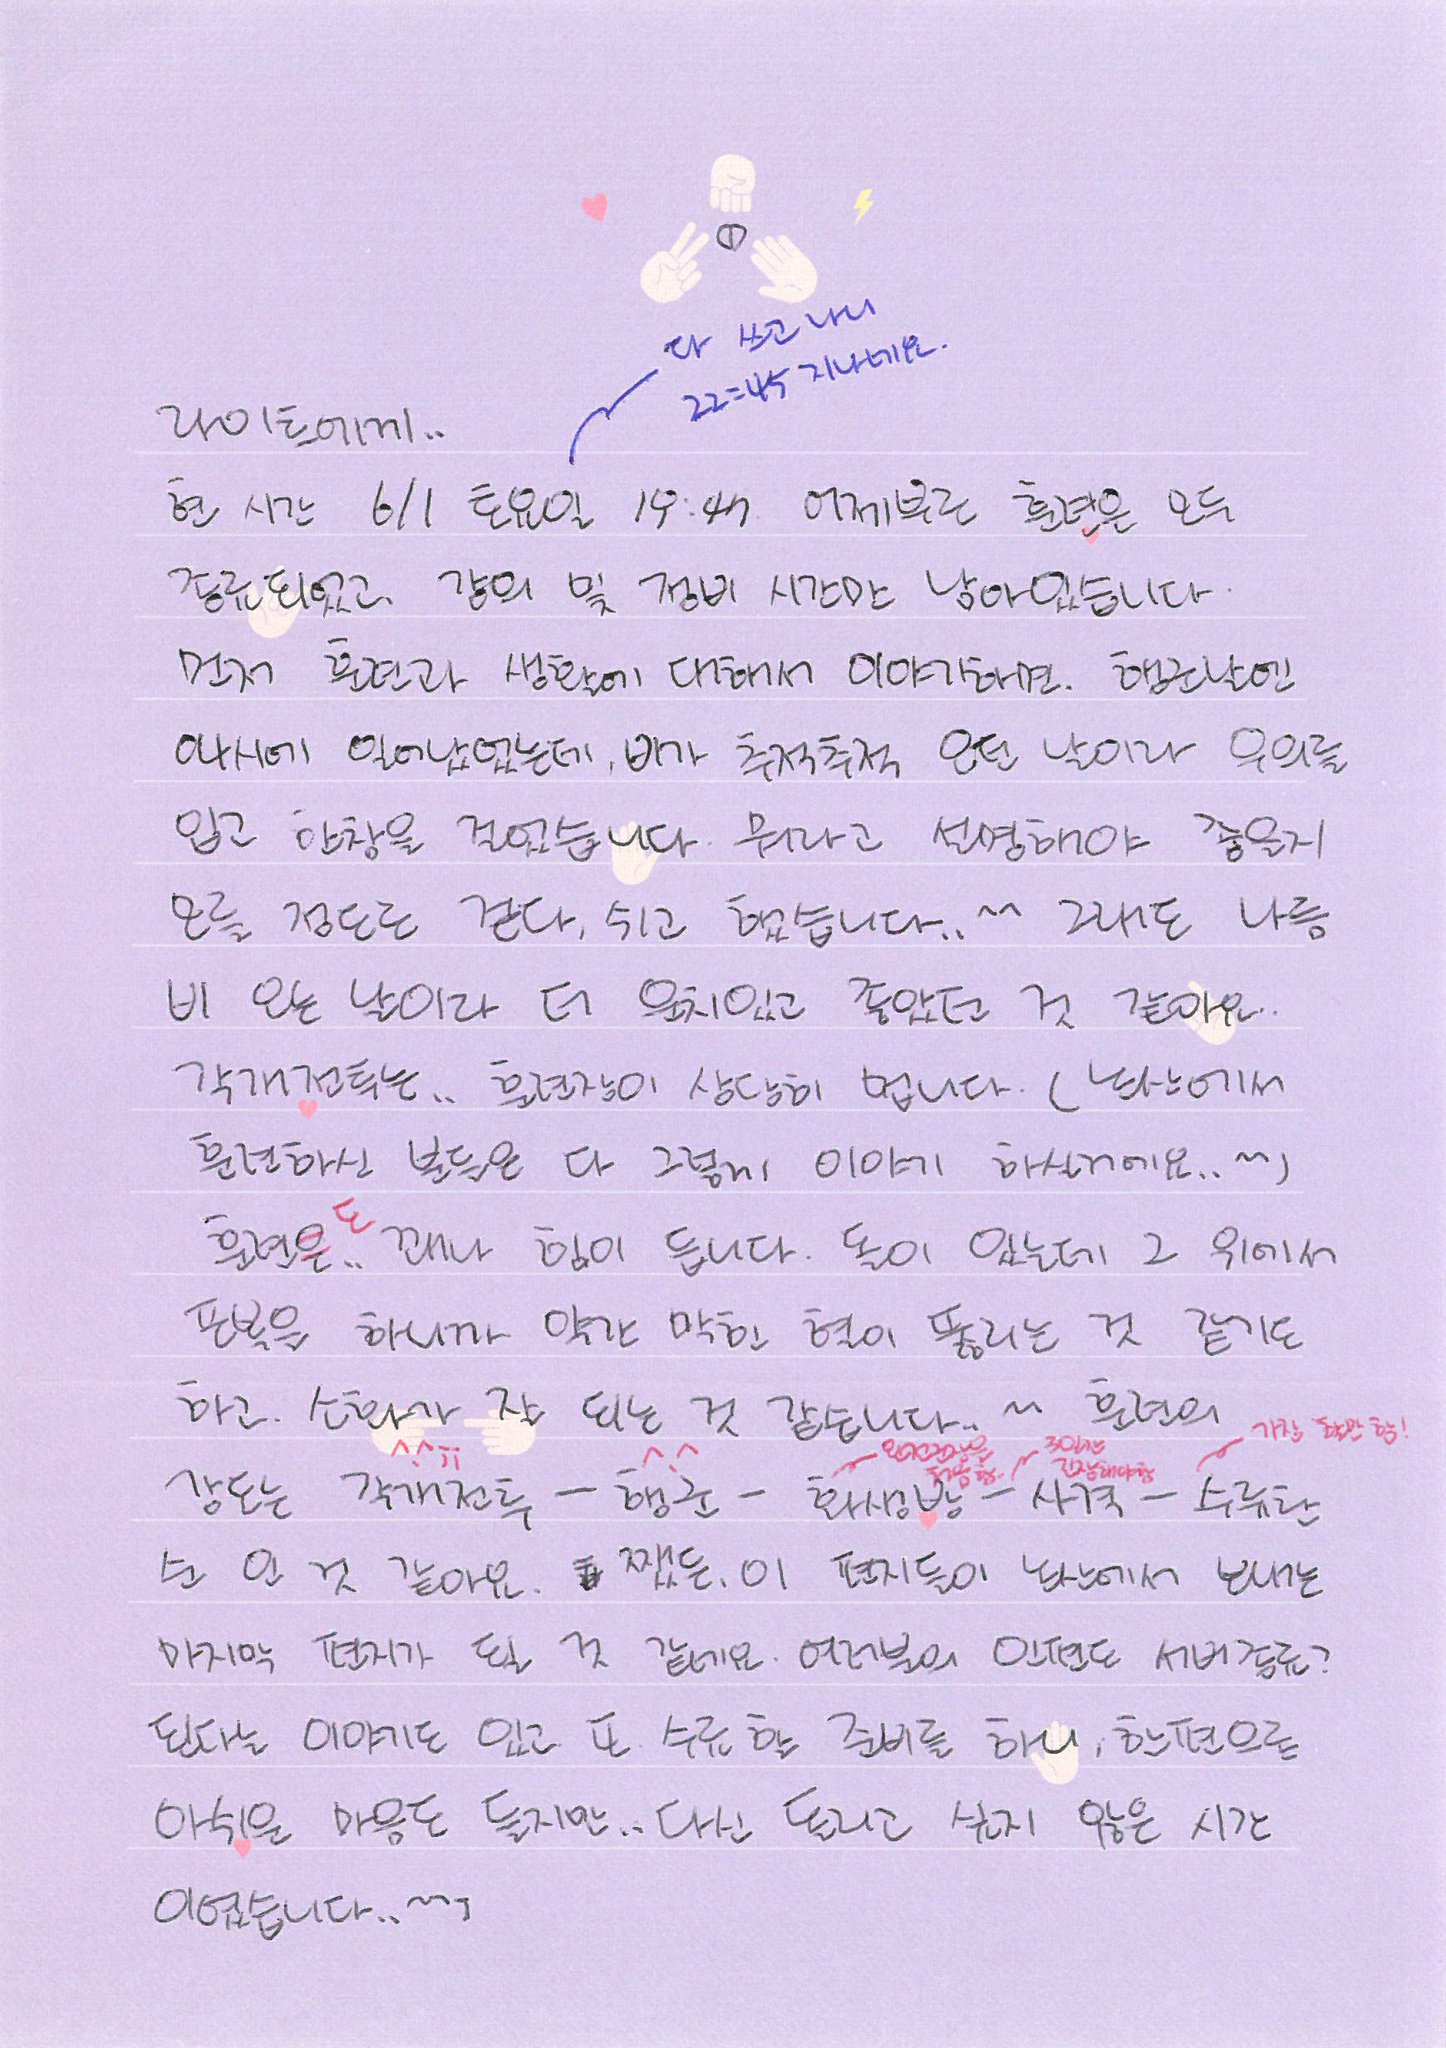 ①
다 쓰고 나니
22:45 지나네요.
라이트에게..
현 시간 6/1 토요일 19:47. 어제부로 훈련은 모두
종료되었고, 강의 및 정비 시간만 남아있습니다.
먼저 훈련과 생활에 대해서 이야기하면. 행군날엔
04시에 일어났었는데, 비가 추적추적 오던 날이라 우의를
입고 한창을 걸었습니다. 뭐라고 설명해야 좋을지
모를 정도로 걷다, 쉬고 했습니다..^^ 그래도 나름
비 오는 날이라 더 운치있고 좋았던 것 같아요..
각개전투는.. 훈련장이 상당히 멉니다. (논산에서
훈련하신 분들은 다 그렇게 이야기 하실거에요..^^)
훈련은도.. 꽤나 힘이 듭니다. 돌이 있는데 그 위에서
포복을 하니까 약간 막힌 혈이 뚫리는 것 같기도
하고. 소화가 잘 되는 것 같습니다..^^ 훈련의
^^;; ^^ 30발은 긴장해야함 가짜 폭탄 함!
강도는 각개전투 - 행군 - 화생방 - 사격 - 수류탄
순 인 것 같아요. 쨌든, 이 편지들이 논산에서 보내는
마지막 편지가 될 것 같네요. 여러분의 인편도 서버종료?
된다는 이야기도 있고. 또 수료할 준비를 하니, 한편으로
아쉬운 마음도 들지만.. 다신 돌리고 싶지 않은 시간
이었습니다..^^;